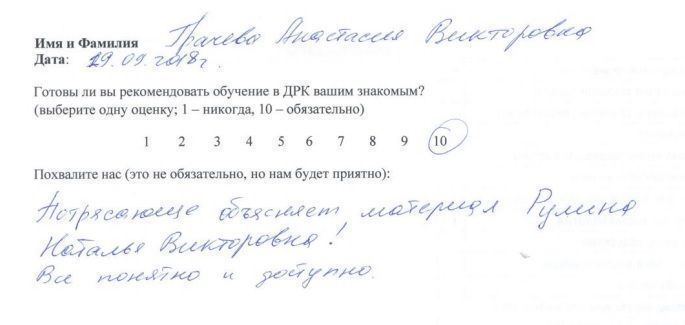 Имя и Фамилия Грачева Анастасия Викторовна
Дата: 19.09.2018г.
Готовы ли вы рекомендовать обучение в ДРК вашим знакомым?
(выберите одну оценку; 1 – никогда, 10 – обязательно)
1 2 3 4 5 6 7 8 9 10
Похвалите нас (это не обязательно, но нам будет приятно):
Потрясающе объясняет материал Рулина
Наталья Викторовна!
Все понятно и доступно.